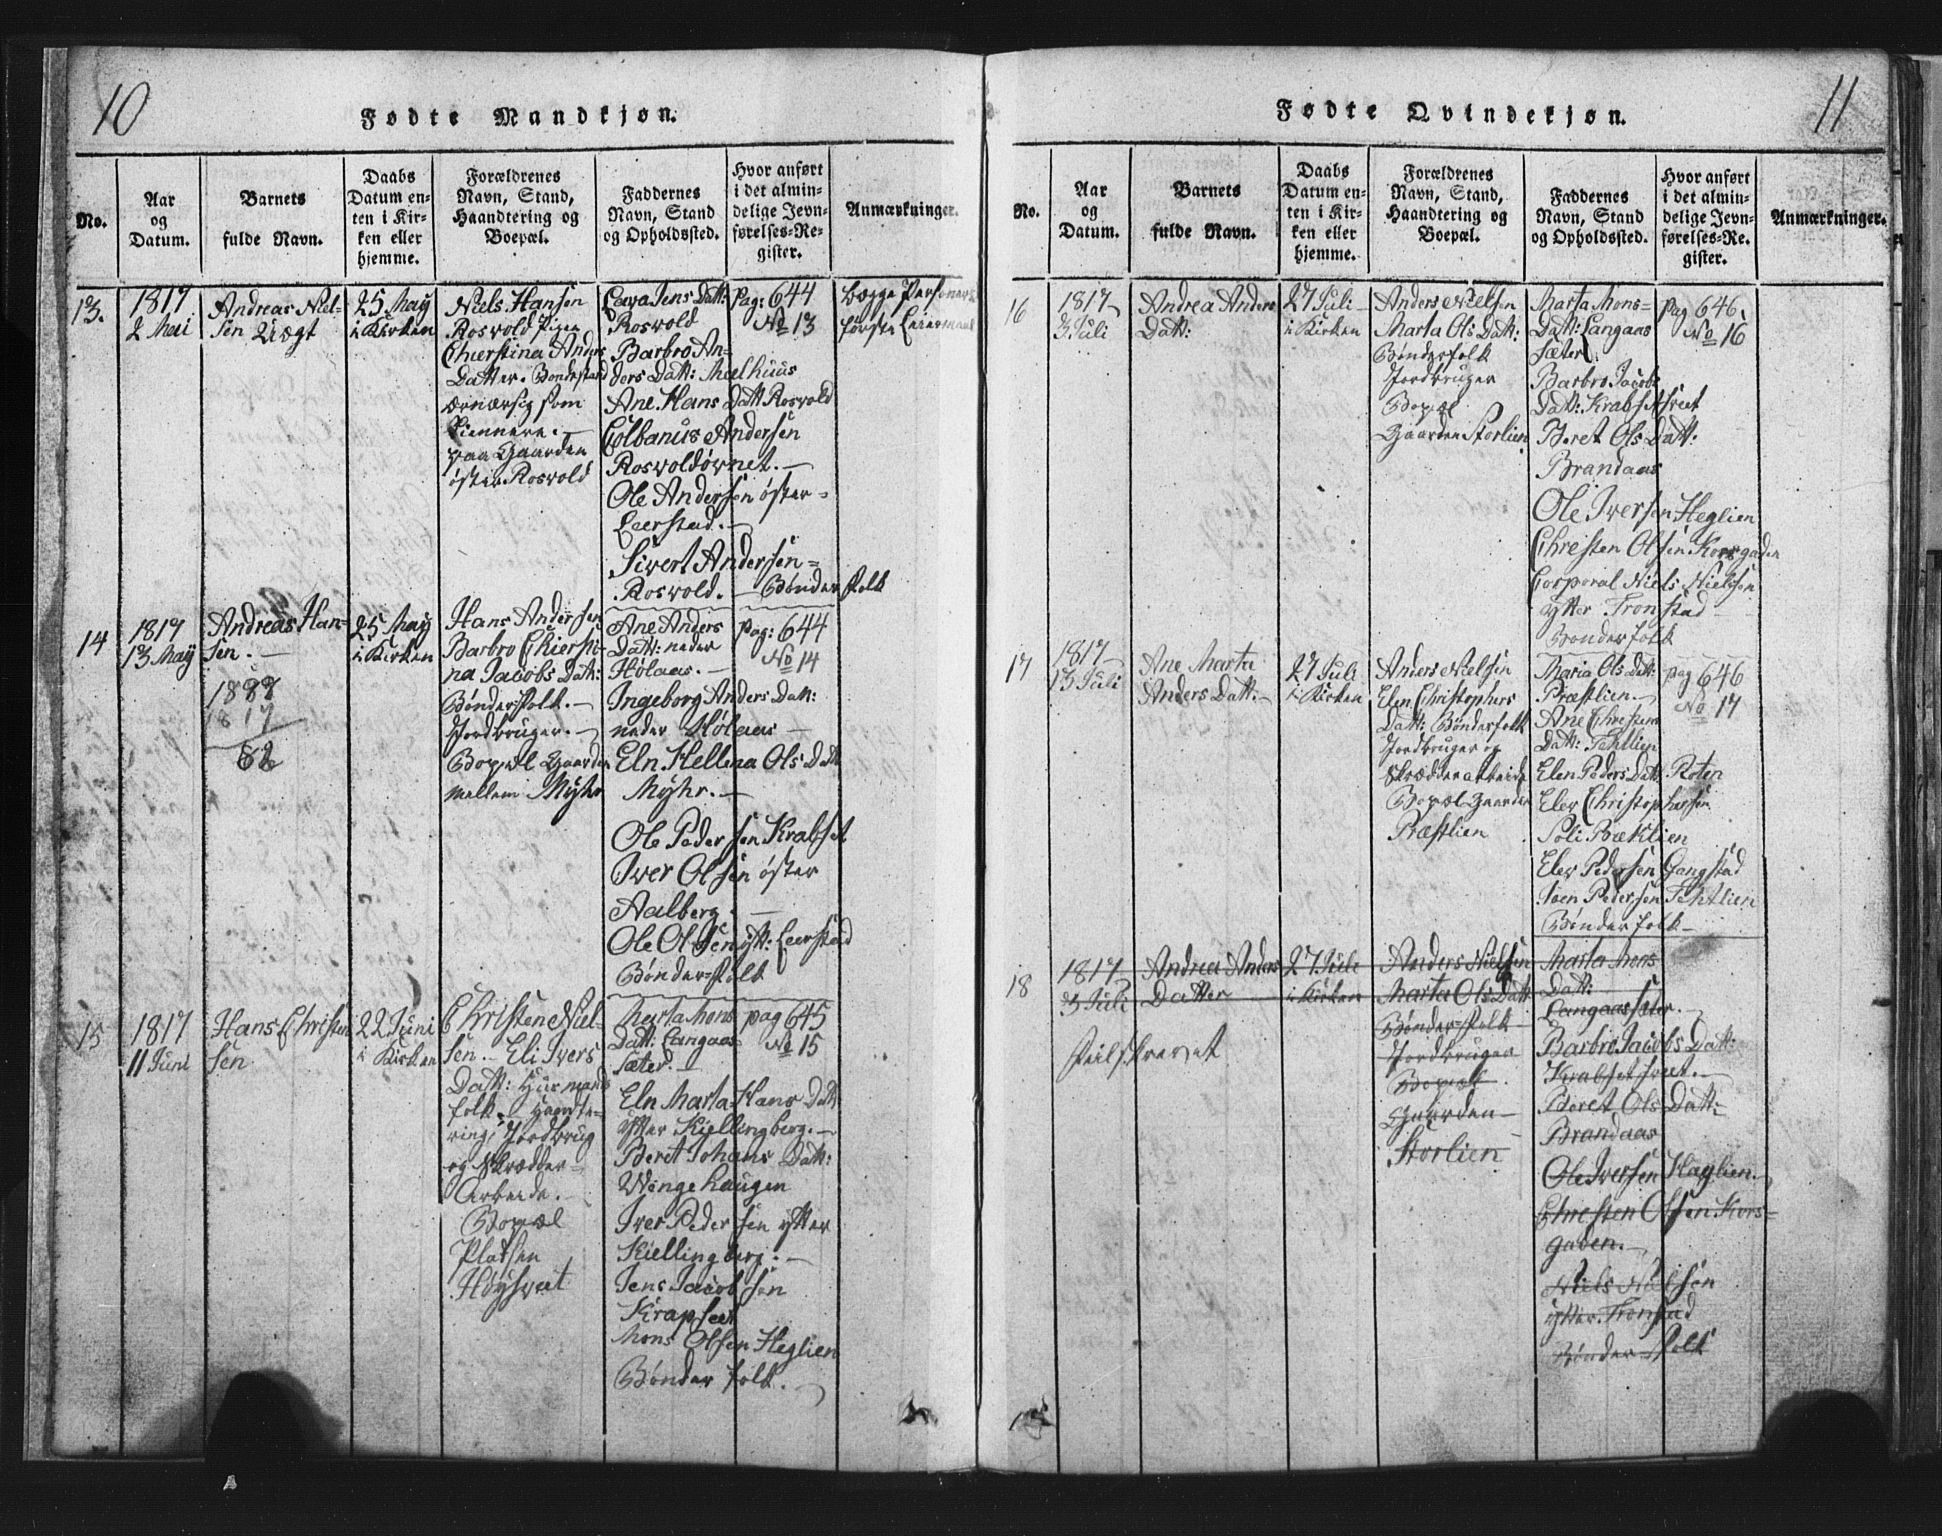 10
Fødte Mandkjøn.
No.
Aar
og
Datum.
Barnets
fulde Navn.
Daabs
Datum en-
ten i Kir-
ken eller
hjemme.
Forældrenes
Navn, Stand,
Haandtering og
Boepæl.
Faddernes
Navn, Stand
og Opholdssted.
Hvor anført
i det almin-
delige Jevn-
førelses-Re-
gister.
Anmærkninger.
13.
1817
2 Mai
Andreas Niel-
sen Uægt
25 May
i Kirken
Niels Hansen
Rosvold Pigen
Chierstina Anders
Datter. Bondestand
ærnærsig som
tiennere.
paa Gaarden
øster Rosvold
Jens Datt:
Rosvold
Barbro An-
ders Datt: Melhuus
Ane Hans Datt Rosvold
Colbanus Andersen
Rosvoldøvnet.
Ole Andersen øster-
Leerstad.
Sivert Andersen-
Rosvold. Bønder folk
Pag: 644
No 13
begge Personers
første Leiermaal
14
1817
13 May
Andreas Han-
sen.
1899
1817
82
25 May
i Kirken
Hans Andersen
Barbro Chiersti-
na Jacobs Datt:
Bønder folk.
Jordbruger.
Bopæl Gaarden
mellem Myhr
Ane Anders
Datt: neder
Hølaas.
Ingeborg Anders Datt:
neder Hølaas
Eln Hellena Ols Datt
Myhr.
Ole Pedersen Krabset
Iver Olsen øster
Aalberg.
Ole Olsen ytt: Leerstad
Bønder-folk
Pag: 644
No 14
15
1817
11 Juni
Hans Christen
sen
22 Juni
i Kirken
Christen Niel-
sen. Eli Ivers
Datt: Huusmands
folk. Haandte-
ring, Jordbrug
og Skrædder-
Arbeide.
Bopæl
Platsen
Høysvet
Marta Mons
Datt: Langaas-
sæter.
Eln Marta Hans Datt
ytter Kiellingberg.
Berit Johans Datt:
Wingehaugen
Iver Pedersen ytter
Kiellingberg.
Jens Jacobsen
Krapset
Mons Olsen Heglien
Bønder folk.
pag 645
No 15
11
Fødte Qvindekjøn.
No.
Aar
og
Datum.
Barnets
fulde Navn.
Daabs
Datum en-
ten i Kir-
ken eller
hjemme.
Forældrenes
Navn, Stand,
Haandtering og
Boepæl.
Faddernes
Navn, Stand
og Opholdssted.
Hvor anført
i det almin-
delige Jevn-
førelses-Re-
gister.
Anmærkninger.
16
1817
3 Juli
Andrea Anders
Datt:
27 Juli
i Kirken
Anders Nielsen
Marta Ols Datt:
Bønderfolk
Jordbruger
Bopæl
Gaarden Storlien
Marta Mons-
Datt: Langaas
sæter
Barbro Jacobs
Datt: Krabsetsveet
Beret Ols Datt:
Brandaas
Ole Iversen Heglien
Christen Olsen Korsgaden
Corporal Niels Nielsen
ytter Tronstad
Bønder folk
Pag 646
No 16
17
1817
13 Juli
Ane Marta
Anders Datt.
27 Juli
i Kirken
Anders Nielsen
Elen Christophers
Datt: Bønderfolk
Jordbruger og
Skrædderarbeide
Bopæl Gaarden
Præstlien
Maria Ols Datt:
Præstlien.
Ane Christens
Datt: Fehtlien
Elen Peders Datt: Roten
Elev Christophersen
Bæklien
Elev Pedersen Gangstad
Sven Pedersen Fehtlien
Bønder folk
pag 646
No 17
18
1817
3 Juli
Andrea Anders
Datter
Feilskrevet
27 Juli
i Kirken
Anders Nielsen
Marta Ols Datt
Bønder-folk
Jordbruger
Bopæl
Gaarden
Storlien
Marta Mons
Datt:
Langaassæter.
Barbro Jacobs Datt:
Krabsetsveet.
Beret Ols Datt:
Brandaas
Ole Iversen Haglien
Christen Olsen Kors-
gaden.
Niels Nielsen
ytter Tronstad
Bønder-folk